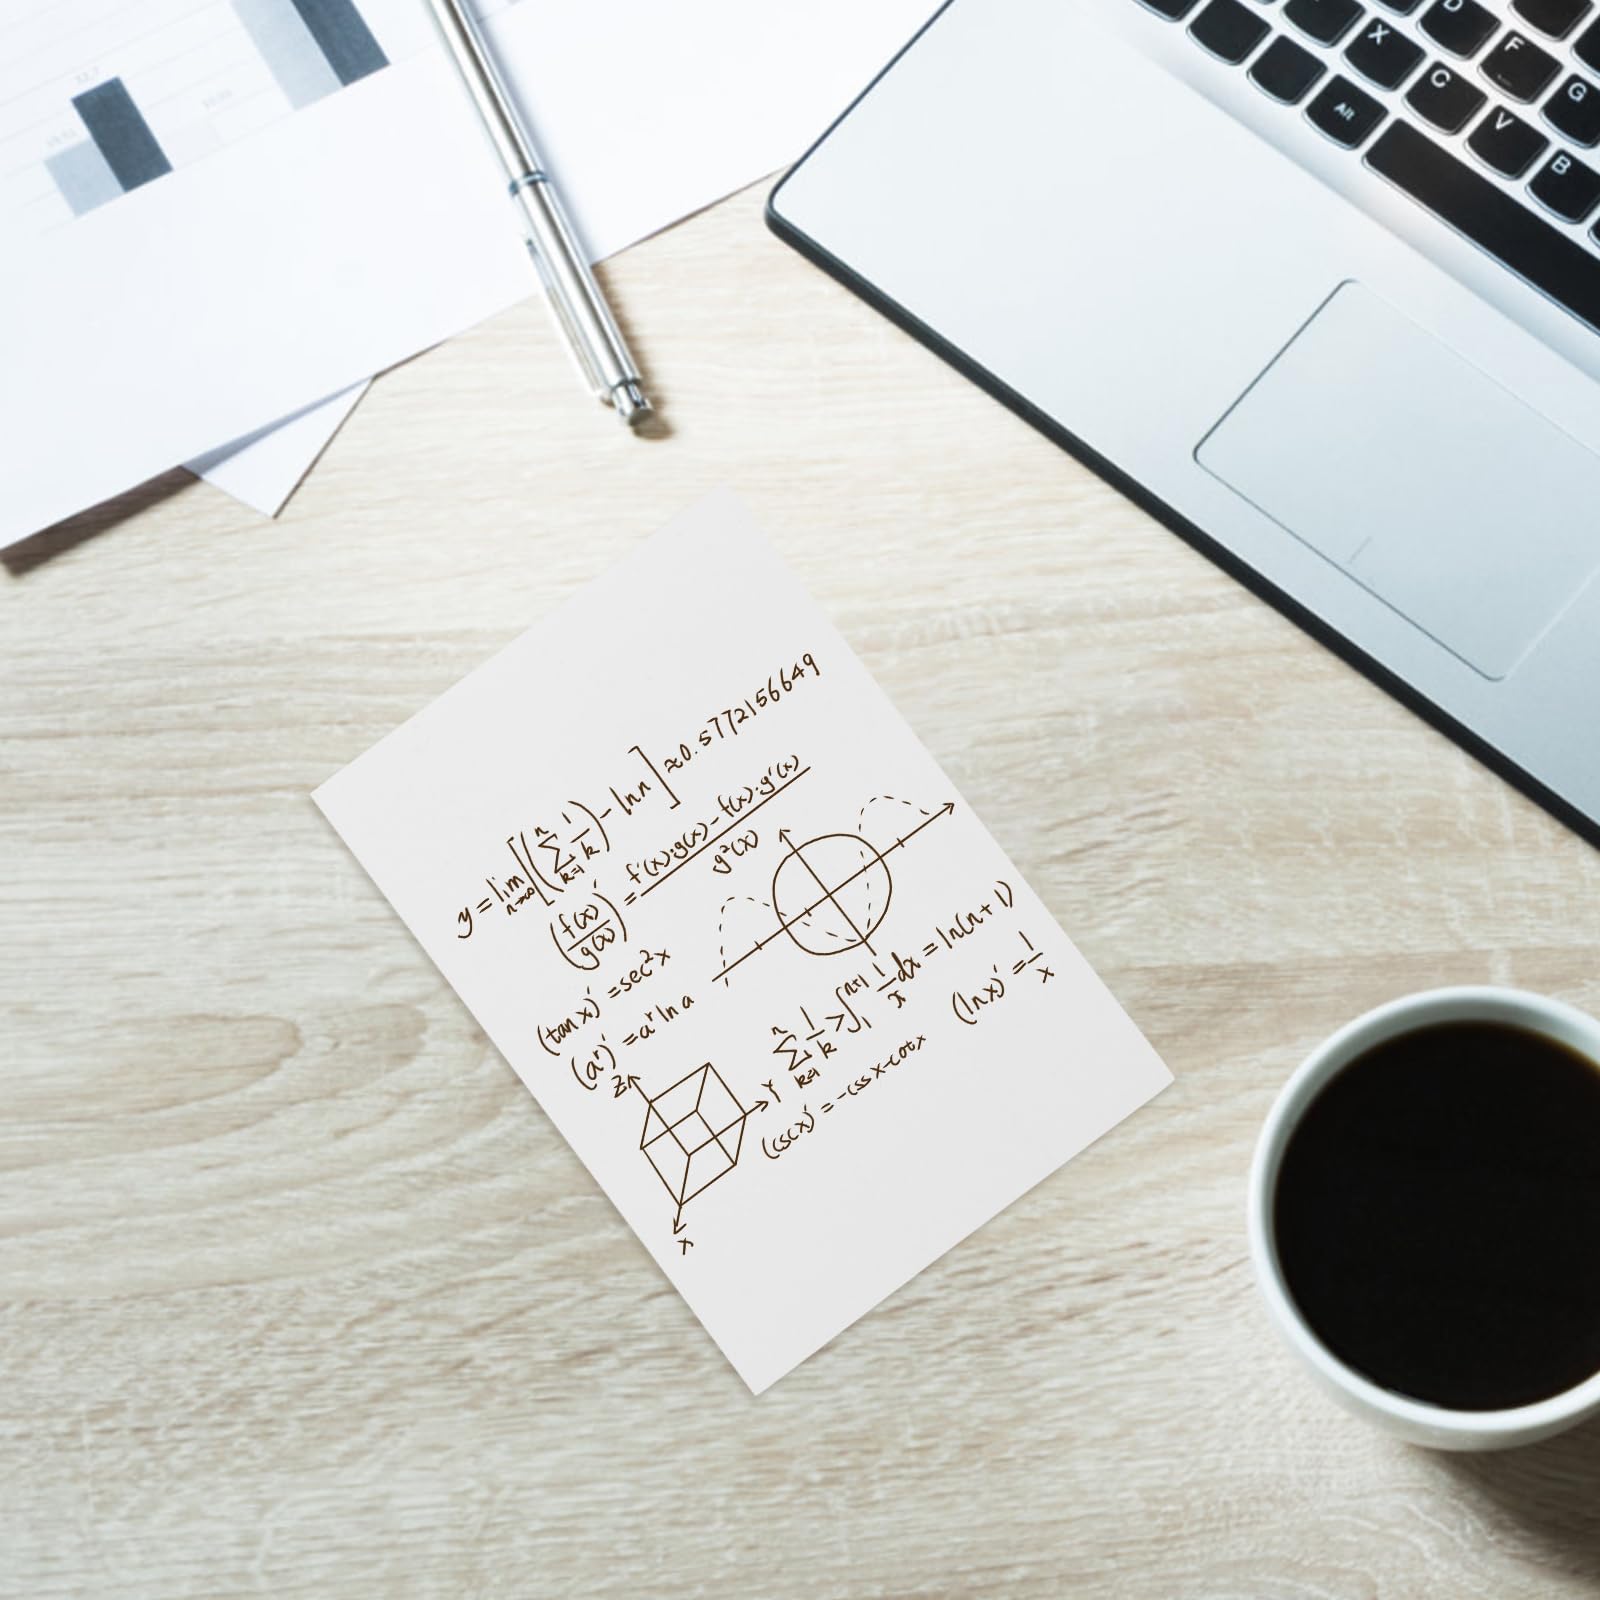 y = lim n→∞ [(∑ k=1 n 1/k) - ln n] ≈ 0.5772156649
(f(x)/g(x))' = f'(x)·g(x) - f(x)·g'(x) / g²(x)
(tan x)' = sec²x
(aʳ)' = aʳ ln a
∑ k=1 n 1/k > ∫ 1 n+1 1/x dx = ln(n+1)
(ln x)' = 1/x
(csc x)' = -css x-cot x
Z
Y
X
D
X
F
C
G
Alt
V
B